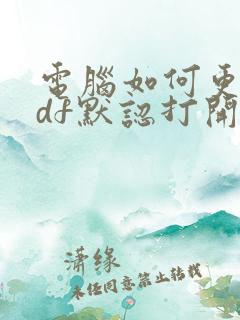 電腦如何更
df默認打開
瀟缘
未经同意禁止转载